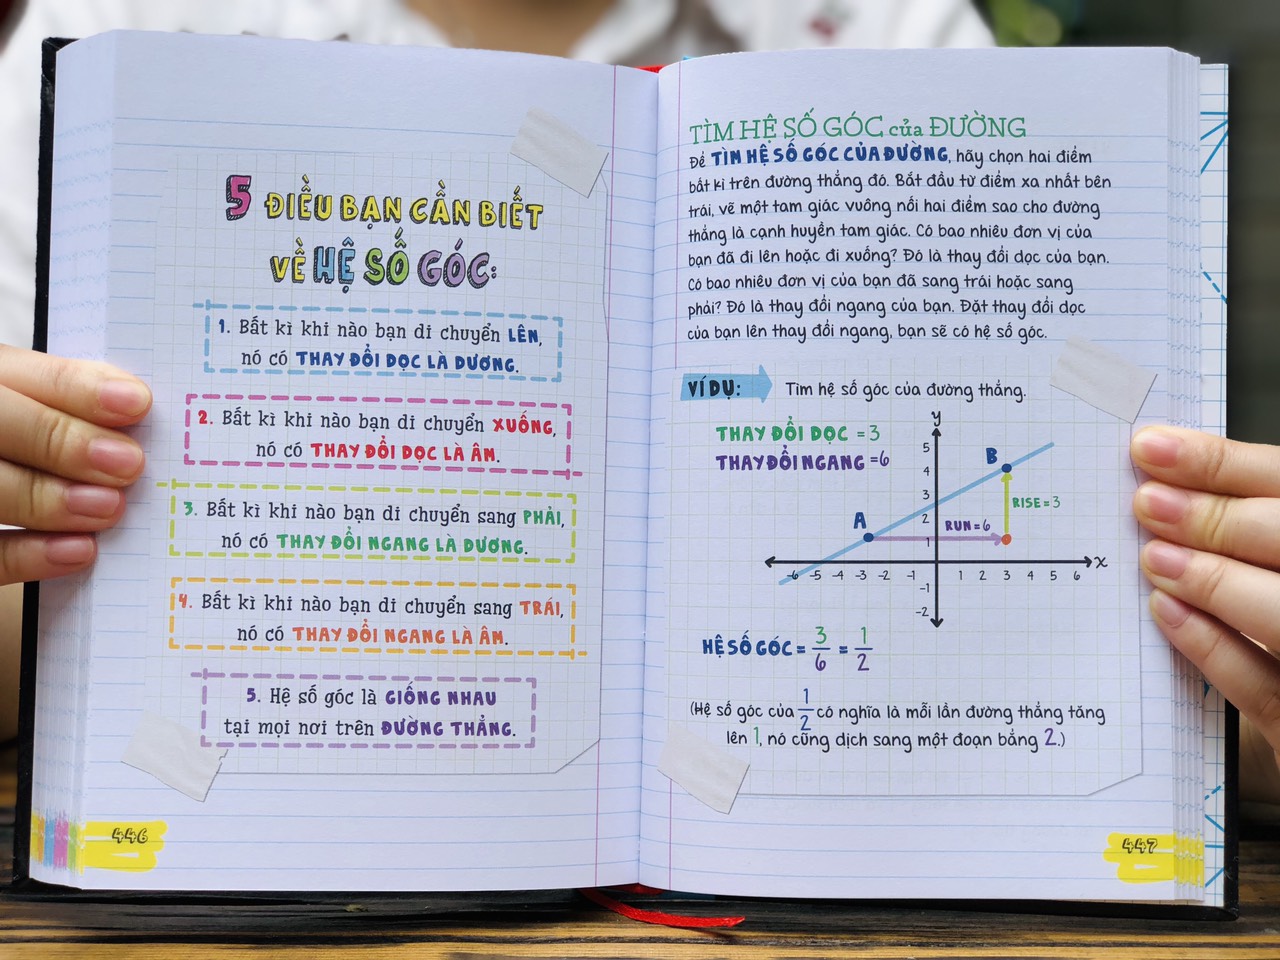 5 ĐIỀU BẠN CẦN BIẾT
VỀ HỆ SỐ GÓC:
1. Bất kì khi nào bạn di chuyển LÊN,
nó có THAY ĐỔI DỌC LÀ DƯƠNG.
2. Bất kì khi nào bạn di chuyển XUỐNG,
nó có THAY ĐỔI DỌC LÀ ÂM.
3. Bất kì khi nào bạn di chuyển sang PHẢI,
nó có THAY ĐỔI NGANG LÀ DƯƠNG.
4. Bất kì khi nào bạn di chuyển sang TRÁI,
nó có THAY ĐỔI NGANG LÀ ÂM.
5. Hệ số góc là GIỐNG NHAU
tại mọi nơi trên ĐƯỜNG THẲNG.
446
TÌM HỆ SỐ GÓC của ĐƯỜNG
Để TÌM HỆ SỐ GÓC CỦA ĐƯỜNG, hãy chọn hai điểm
bất kì trên đường thẳng đó. Bắt đầu từ điểm xa nhất bên
trái, vẽ một tam giác vuông nối hai điểm sao cho đường
thẳng là cạnh huyền tam giác. Có bao nhiêu đơn vị của
bạn đã đi lên hoặc đi xuống? Đó là thay đổi dọc của bạn.
Có bao nhiêu đơn vị của bạn đã sang trái hoặc sang
phải? Đó là thay đổi ngang của bạn. Đặt thay đổi dọc
của bạn lên thay đổi ngang, bạn sẽ có hệ số góc.
VÍ DỤ: Tìm hệ số góc của đường thẳng.
THAY ĐỔI DỌC = 3
THAY ĐỔI NGANG = 6
y
5
B
4
3
RISE = 3
A
2
RUN = 6
1
x
-6 -5 -4 -3 -2 -1 1 2 3 4 5 6
-1
-2
HỆ SỐ GÓC = 3/6 = 1/2
(Hệ số góc của 1/2 có nghĩa là mỗi lần đường thẳng tăng
lên 1, nó cũng dịch sang một đoạn bằng 2.)
447